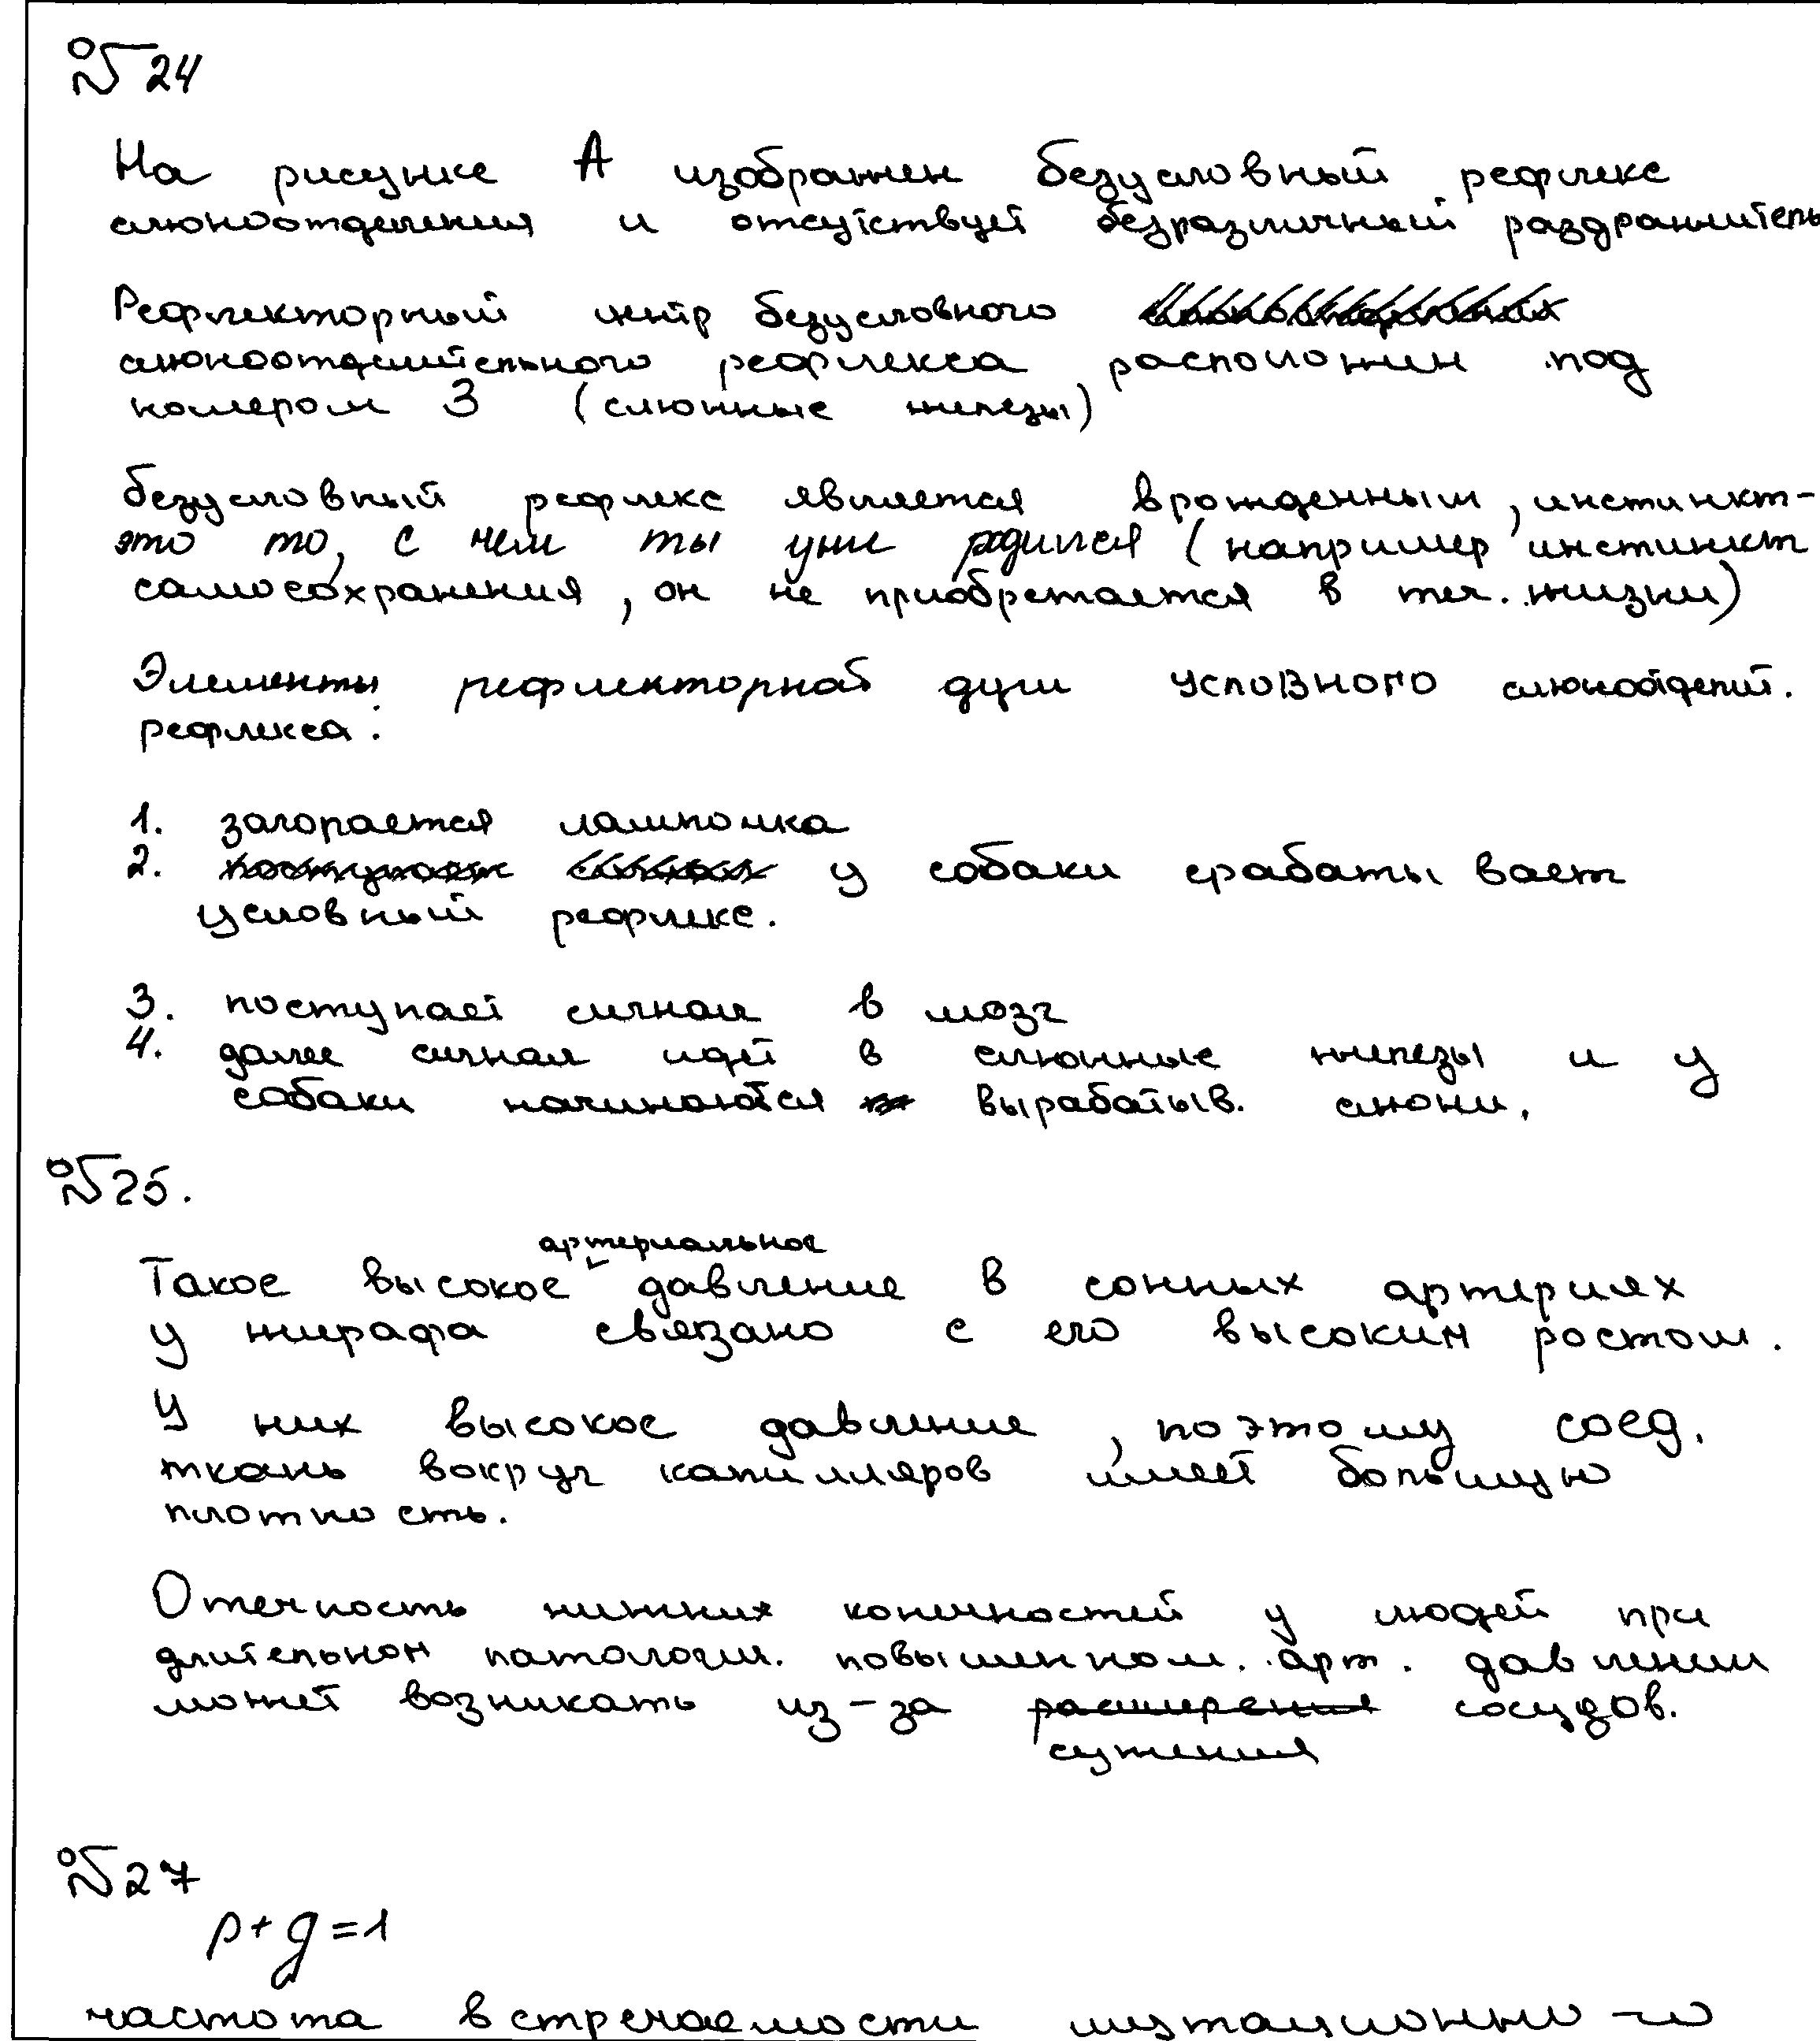 № 24
На рисунке А изображен безусловный рефлекс
слюноотделения и отсутствует безразличный раздражитель
Рефлекторный центр безусловного
слюноотделительного рефлекса расположен под
номером 3 (слюнные железы)
безусловный рефлекс является врожденным, инстинкт-
это то, с чем ты уже родился (например инстинкт
самосохранения, он не приобретается в теч. жизни)
Элементы рефлекторной дуги условного слюноотделит.
рефлекса:
1. загорается лампочка
2. у собаки срабатывает
условный рефлекс.
3. поступает сигнал в мозг
4. далее сигнал идет в слюнные железы и у
собаки начинаются вырабатыв. слюни.
№ 25.
артериальное
Такое высокое давление в сонных артериях
у жирафа связано с его высоким ростом.
У них высокое давление, поэтому соед.
ткань вокруг капилляров имеет большую
плотность.
Отечность нижних конечностей у людей при
длительном патологич. повышенном. арт. давлении
может возникать из-за расширения сосудов.
сужения
№ 27
p+g=1
частота встречаемости мутационно-го